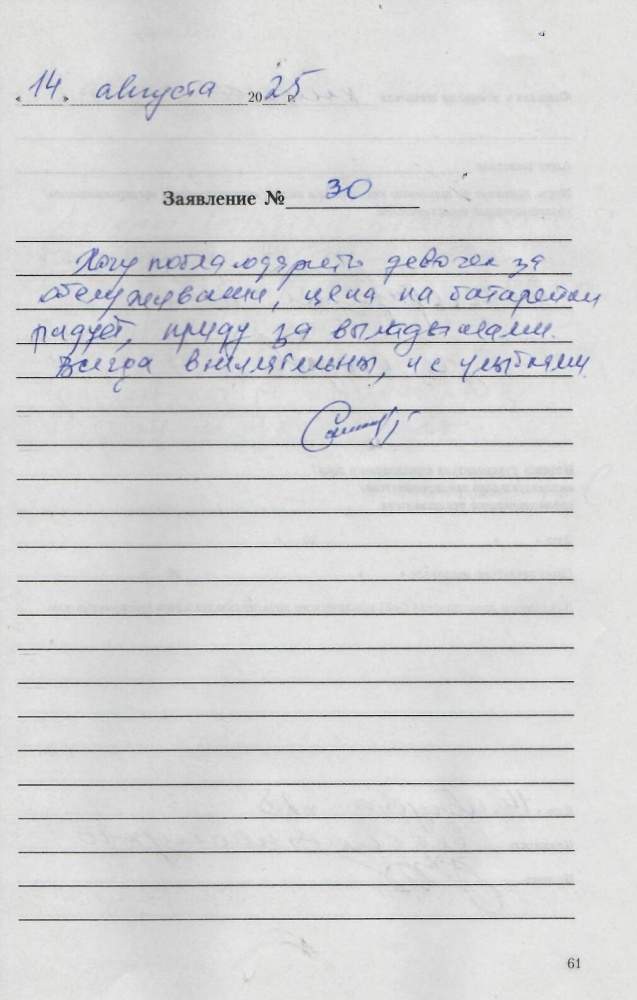 « 14 » августа 2025 г.
Заявление № 30
Хочу поблагодарить девочек за
обслуживание, цена на батарейки
радует, приду за вкладышами.
Всегда внимательны, и с улыбками.
61